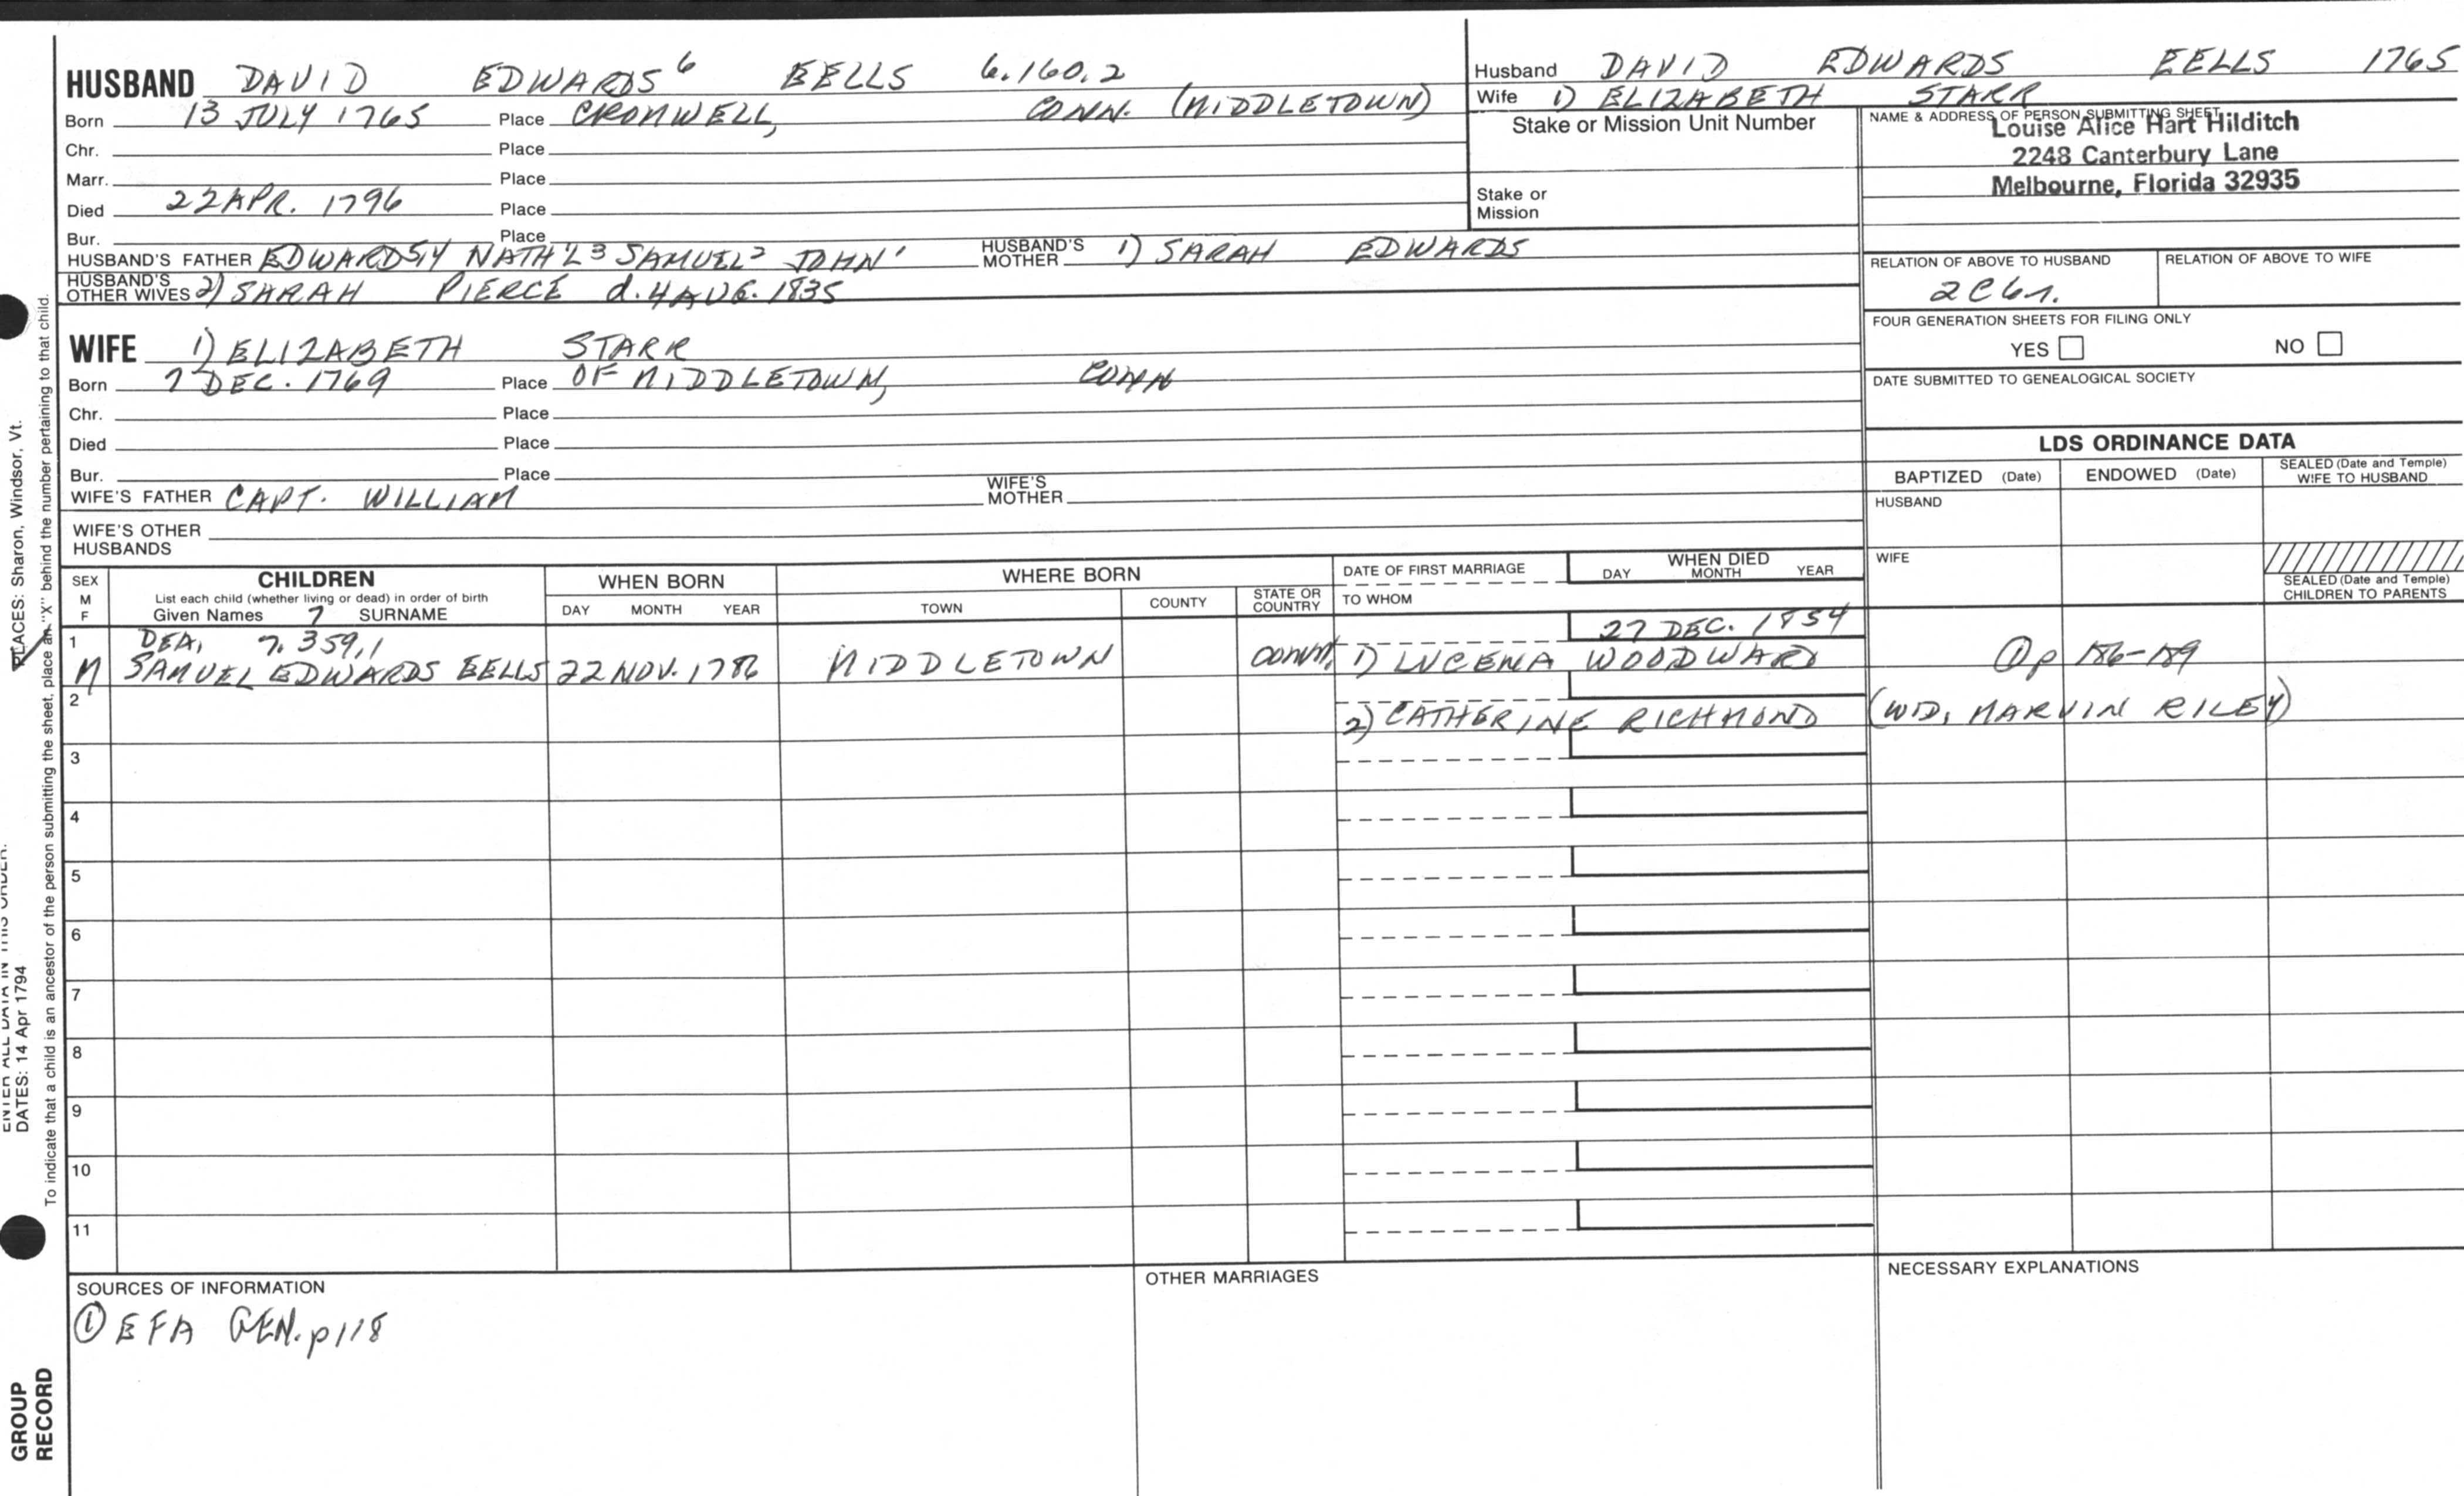 HUSBAND DAVID EDWARDS⁶ EELLS 6.160.2
Born 13 JULY 1765 Place CROMWELL, CONN. (MIDDLETOWN)
Chr. Place
Marr. Place
Died 22 APR. 1796 Place
Bur. Place
HUSBAND'S FATHER EDWARDS5,4 NATH'L3 SAMUEL2 JOHN' HUSBAND'S MOTHER 1) SARAH EDWARDS
HUSBAND'S OTHER WIVES 2) SARAH PIERCE d. 4 AUG. 1835
WIFE 1) ELIZABETH STARR
Born 7 DEC. 1769 Place OF MIDDLETOWN, CONN
Chr. Place
Died Place
Bur. Place
WIFE'S FATHER CAPT. WILLIAM WIFE'S MOTHER
WIFE'S OTHER HUSBANDS
Husband DAVID EDWARDS EELLS 1765
Wife 1) ELIZABETH STARR
Stake or Mission Unit Number
Stake or Mission
NAME & ADDRESS OF PERSON SUBMITTING SHEET
Louise Alice Hart Hilditch
2248 Canterbury Lane
Melbourne, Florida 32935
RELATION OF ABOVE TO HUSBAND RELATION OF ABOVE TO WIFE
2C6r.
FOUR GENERATION SHEETS FOR FILING ONLY
YES NO
DATE SUBMITTED TO GENEALOGICAL SOCIETY
LDS ORDINANCE DATA
BAPTIZED (Date) ENDOWED (Date) SEALED (Date and Temple) WIFE TO HUSBAND
HUSBAND
WIFE
SEALED (Date and Temple) CHILDREN TO PARENTS
SEX M F CHILDREN WHEN BORN WHERE BORN DATE OF FIRST MARRIAGE WHEN DIED
List each child (whether living or dead) in order of birth DAY MONTH YEAR
Given Names 7 SURNAME DAY MONTH YEAR TOWN COUNTY STATE OR COUNTRY TO WHOM
1 DEA. 7.359.1 27 DEC. 1854
M SAMUEL EDWARDS EELLS 22 NOV. 1786 MIDDLETOWN CONN. 1) LUCENA WOODWARD ① p 186-189
2 2) CATHERINE RICHMOND (WD. MARVIN RILEY)
3
4
5
6
7
8
9
10
11
SOURCES OF INFORMATION OTHER MARRIAGES NECESSARY EXPLANATIONS
① EFA GEN. p118
PLACES: Sharon, Windsor, Vt.
ENTER ALL DATA IN THIS ORDER:
DATES: 14 Apr 1794
To indicate that a child is an ancestor of the person submitting the sheet, place an "X" behind the number pertaining to that child.
GROUP
RECORD